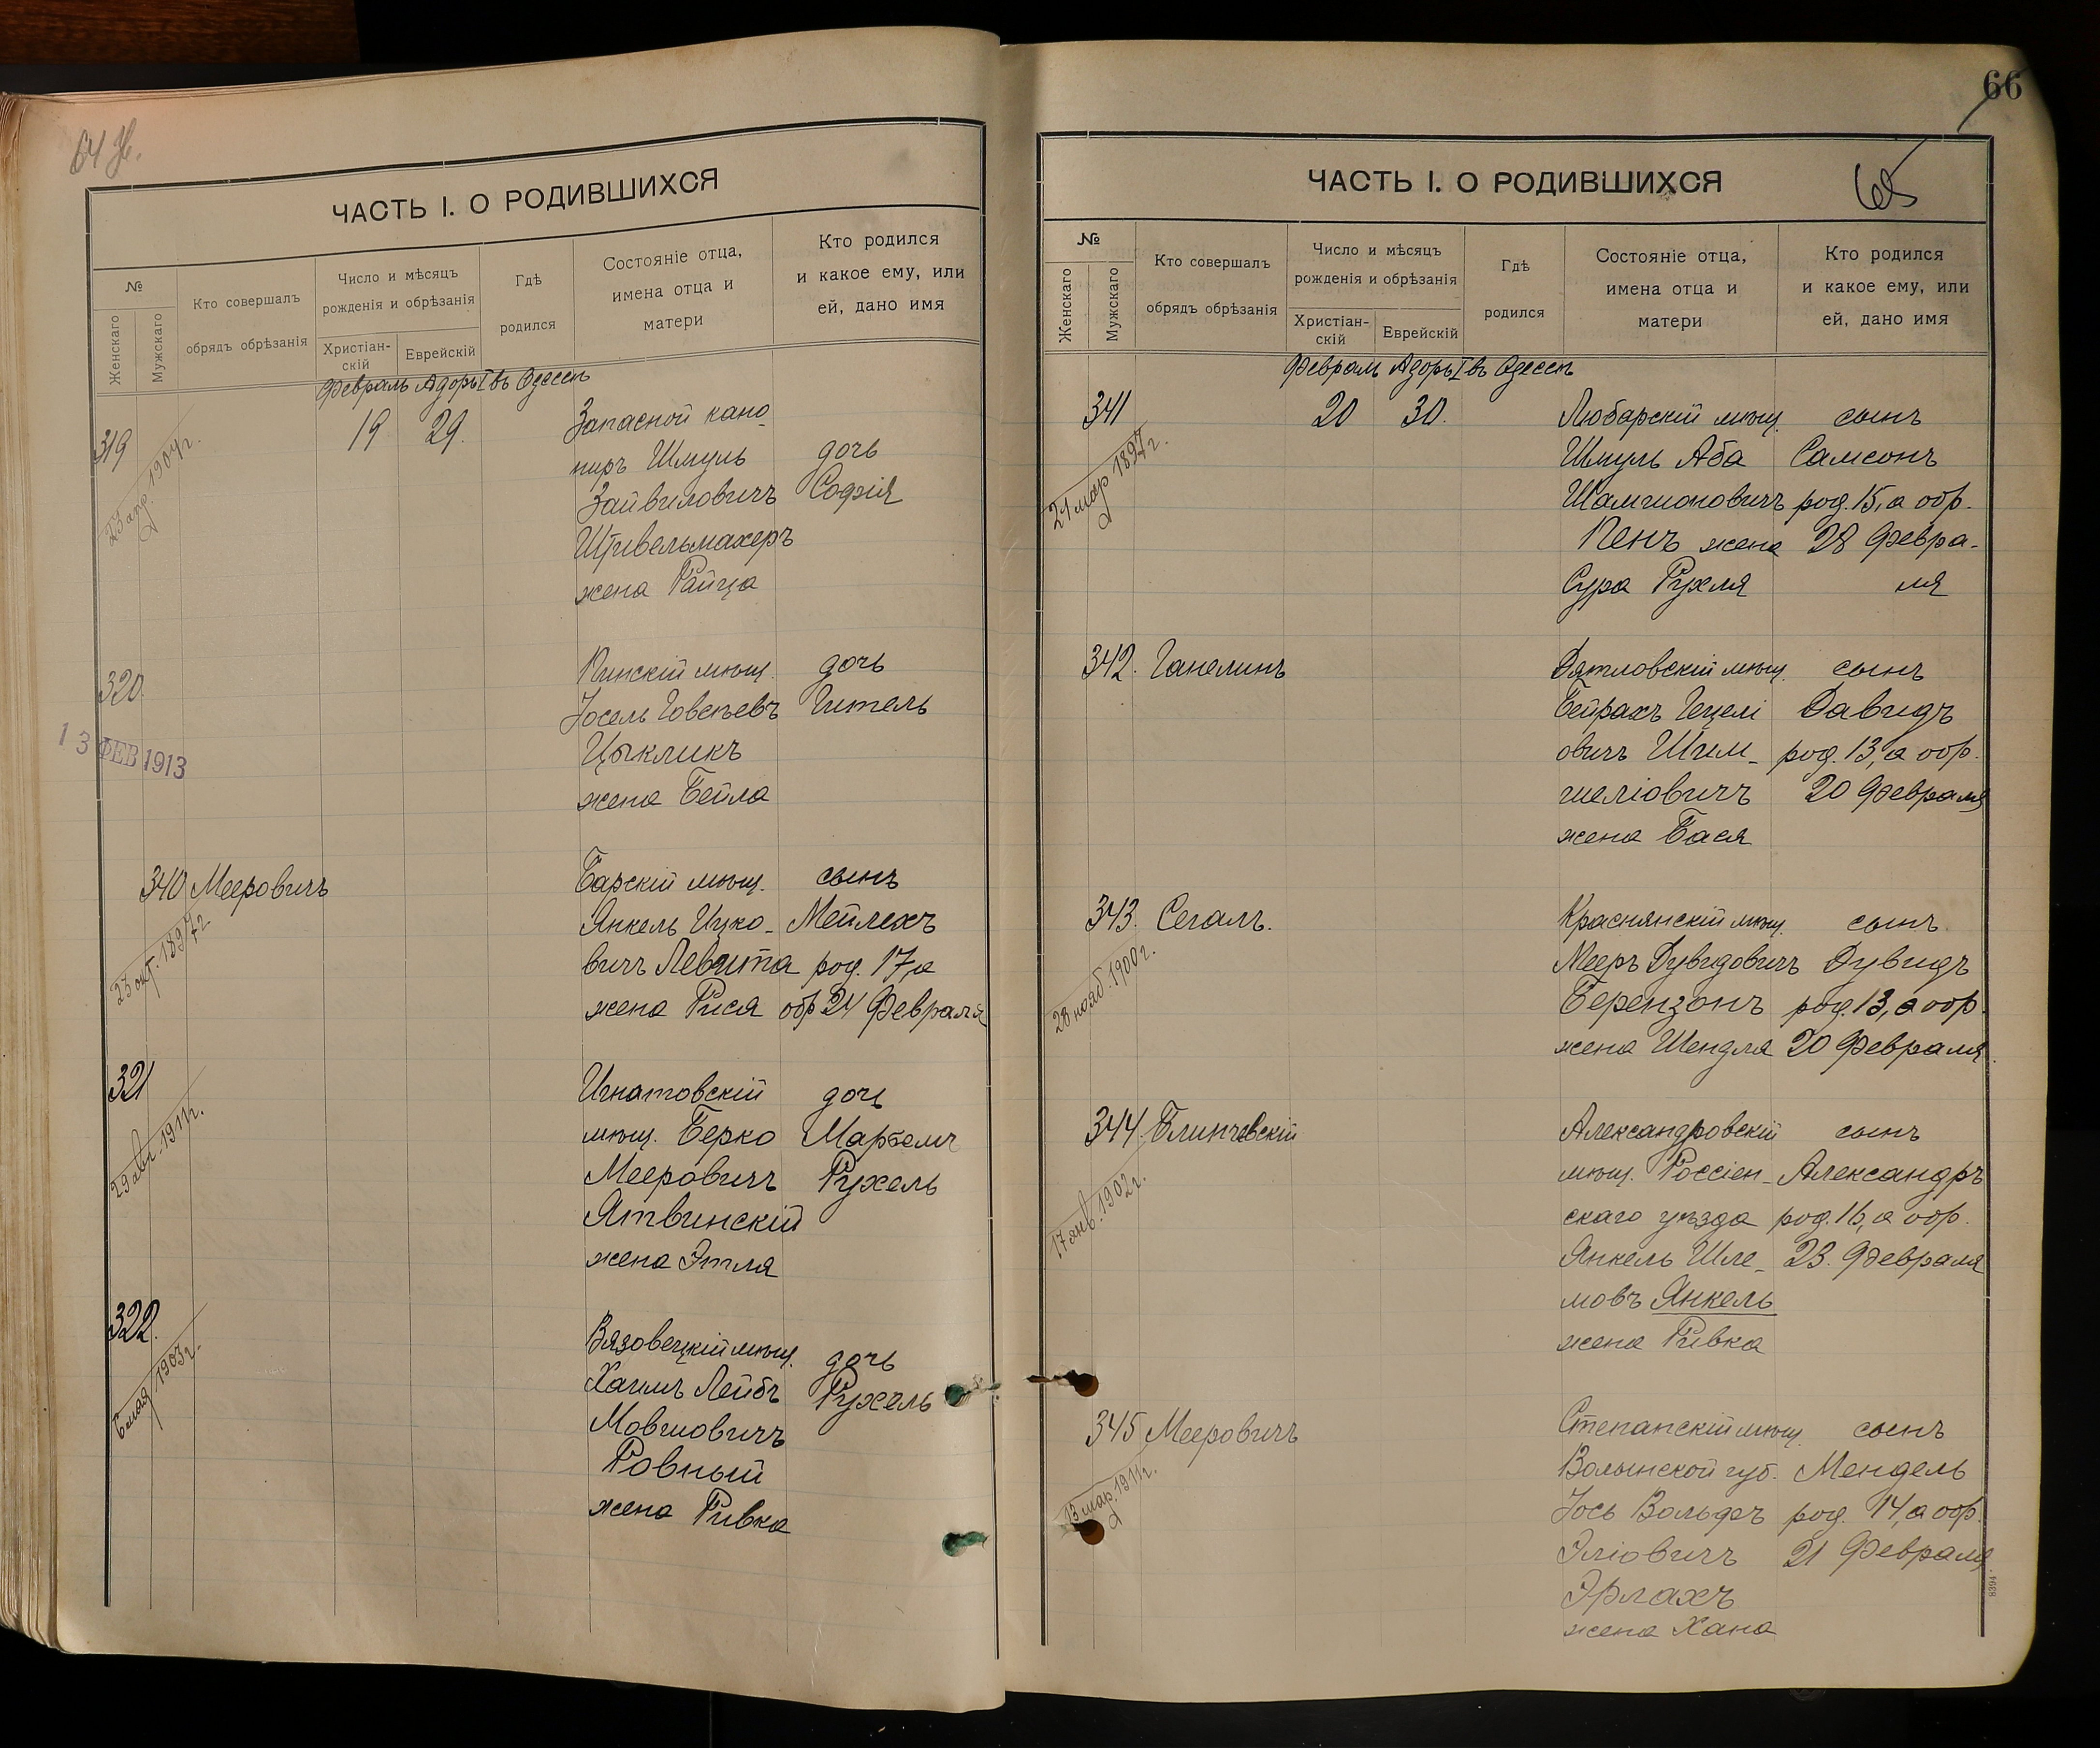 64 Ж.
ЧАСТЬ I. О РОДИВШИХСЯ
№
Женскаго
Мужскаго
Кто совершалъ
обрядъ обрѣзанія
Число и мѣсяцъ
рожденія и обрѣзанія
Христіан-
скій
Еврейскій
Гдѣ
родился
Состояніе отца,
имена отца и
матери
Кто родился
и какое ему, или
ей, дано имя
Февраль Адоръ I въ Одессѣ
319
19 29.
23 апр. 1904 г.
Запасной кано-
ниръ Шмуль дочь
Зайвиловичъ Софія
Штивельмахеръ
жена Райца
320.
13 ФЕВ 1913
Пинскій мѣщ. дочь
Іосель Говсѣевъ Гитель
Цыкликъ
жена Бейла
340 Мееровичъ
23 окт. 1897 г.
Барскій мѣщ. сынъ
Янкель Ицко- Мейлехъ
вичъ Левита род. 17, а
жена Рися обр 24 Февраля
321
29 авг. 1911 г.
Игнатовскій дочь
мѣщ. Берко
Мееровичъ Рухель
Ятвинскій
жена Этля
322.
6 мая 1903 г.
Вязовецкій мѣщ. дочь
Хаимъ Лейбъ Рухель
Мовшовичъ
Ровный
жена Ривка
66
65
ЧАСТЬ I. О РОДИВШИХСЯ
№
Женскаго
Мужскаго
Кто совершалъ
обрядъ обрѣзанія
Число и мѣсяцъ
рожденія и обрѣзанія
Христіан-
скій
Еврейскій
Гдѣ
родился
Состояніе отца,
имена отца и
матери
Кто родился
и какое ему, или
ей, дано имя
Февраль Адоръ I въ Одессѣ
341
20 30.
21 мар 1897 г.
Любарскій мѣщ. сынъ
Шмуль Аба Самсонъ
Шамшоновичъ род. 15, а обр.
Пенъ жена 28 Февра-
Сура Рухля ля
342. Ганелинъ
Дятловскій мѣщ. сынъ
Бейрахъ Гецелі Давидъ
овичъ Шим- род. 13, а обр.
шеліовичъ 20 Февраля
жена Бася
343. Сегалъ.
28 нояб. 1900 г.
Краснянскій мѣщ. сынъ
Мееръ Дувидовичъ Дувидъ
Берензонъ род. 13, а обр.
жена Шендля 20 Февраля.
344. Блинчевскій
17 янв. 1902 г.
Александровскій сынъ
мѣщ. Россіен- Александръ
скаго уѣзда род. 16, а обр.
Янкель Шле- 23. Февраля
мовъ Янкель
жена Ривка
345 Мееровичъ
13 мар. 1911 г.
Степанскій мѣщ. сынъ
Волынской губ. Мендель
Іось Вольфъ род. 14, а обр.
Эліовичъ 21 Февраля
Эрлахъ
жена Хана
8394.